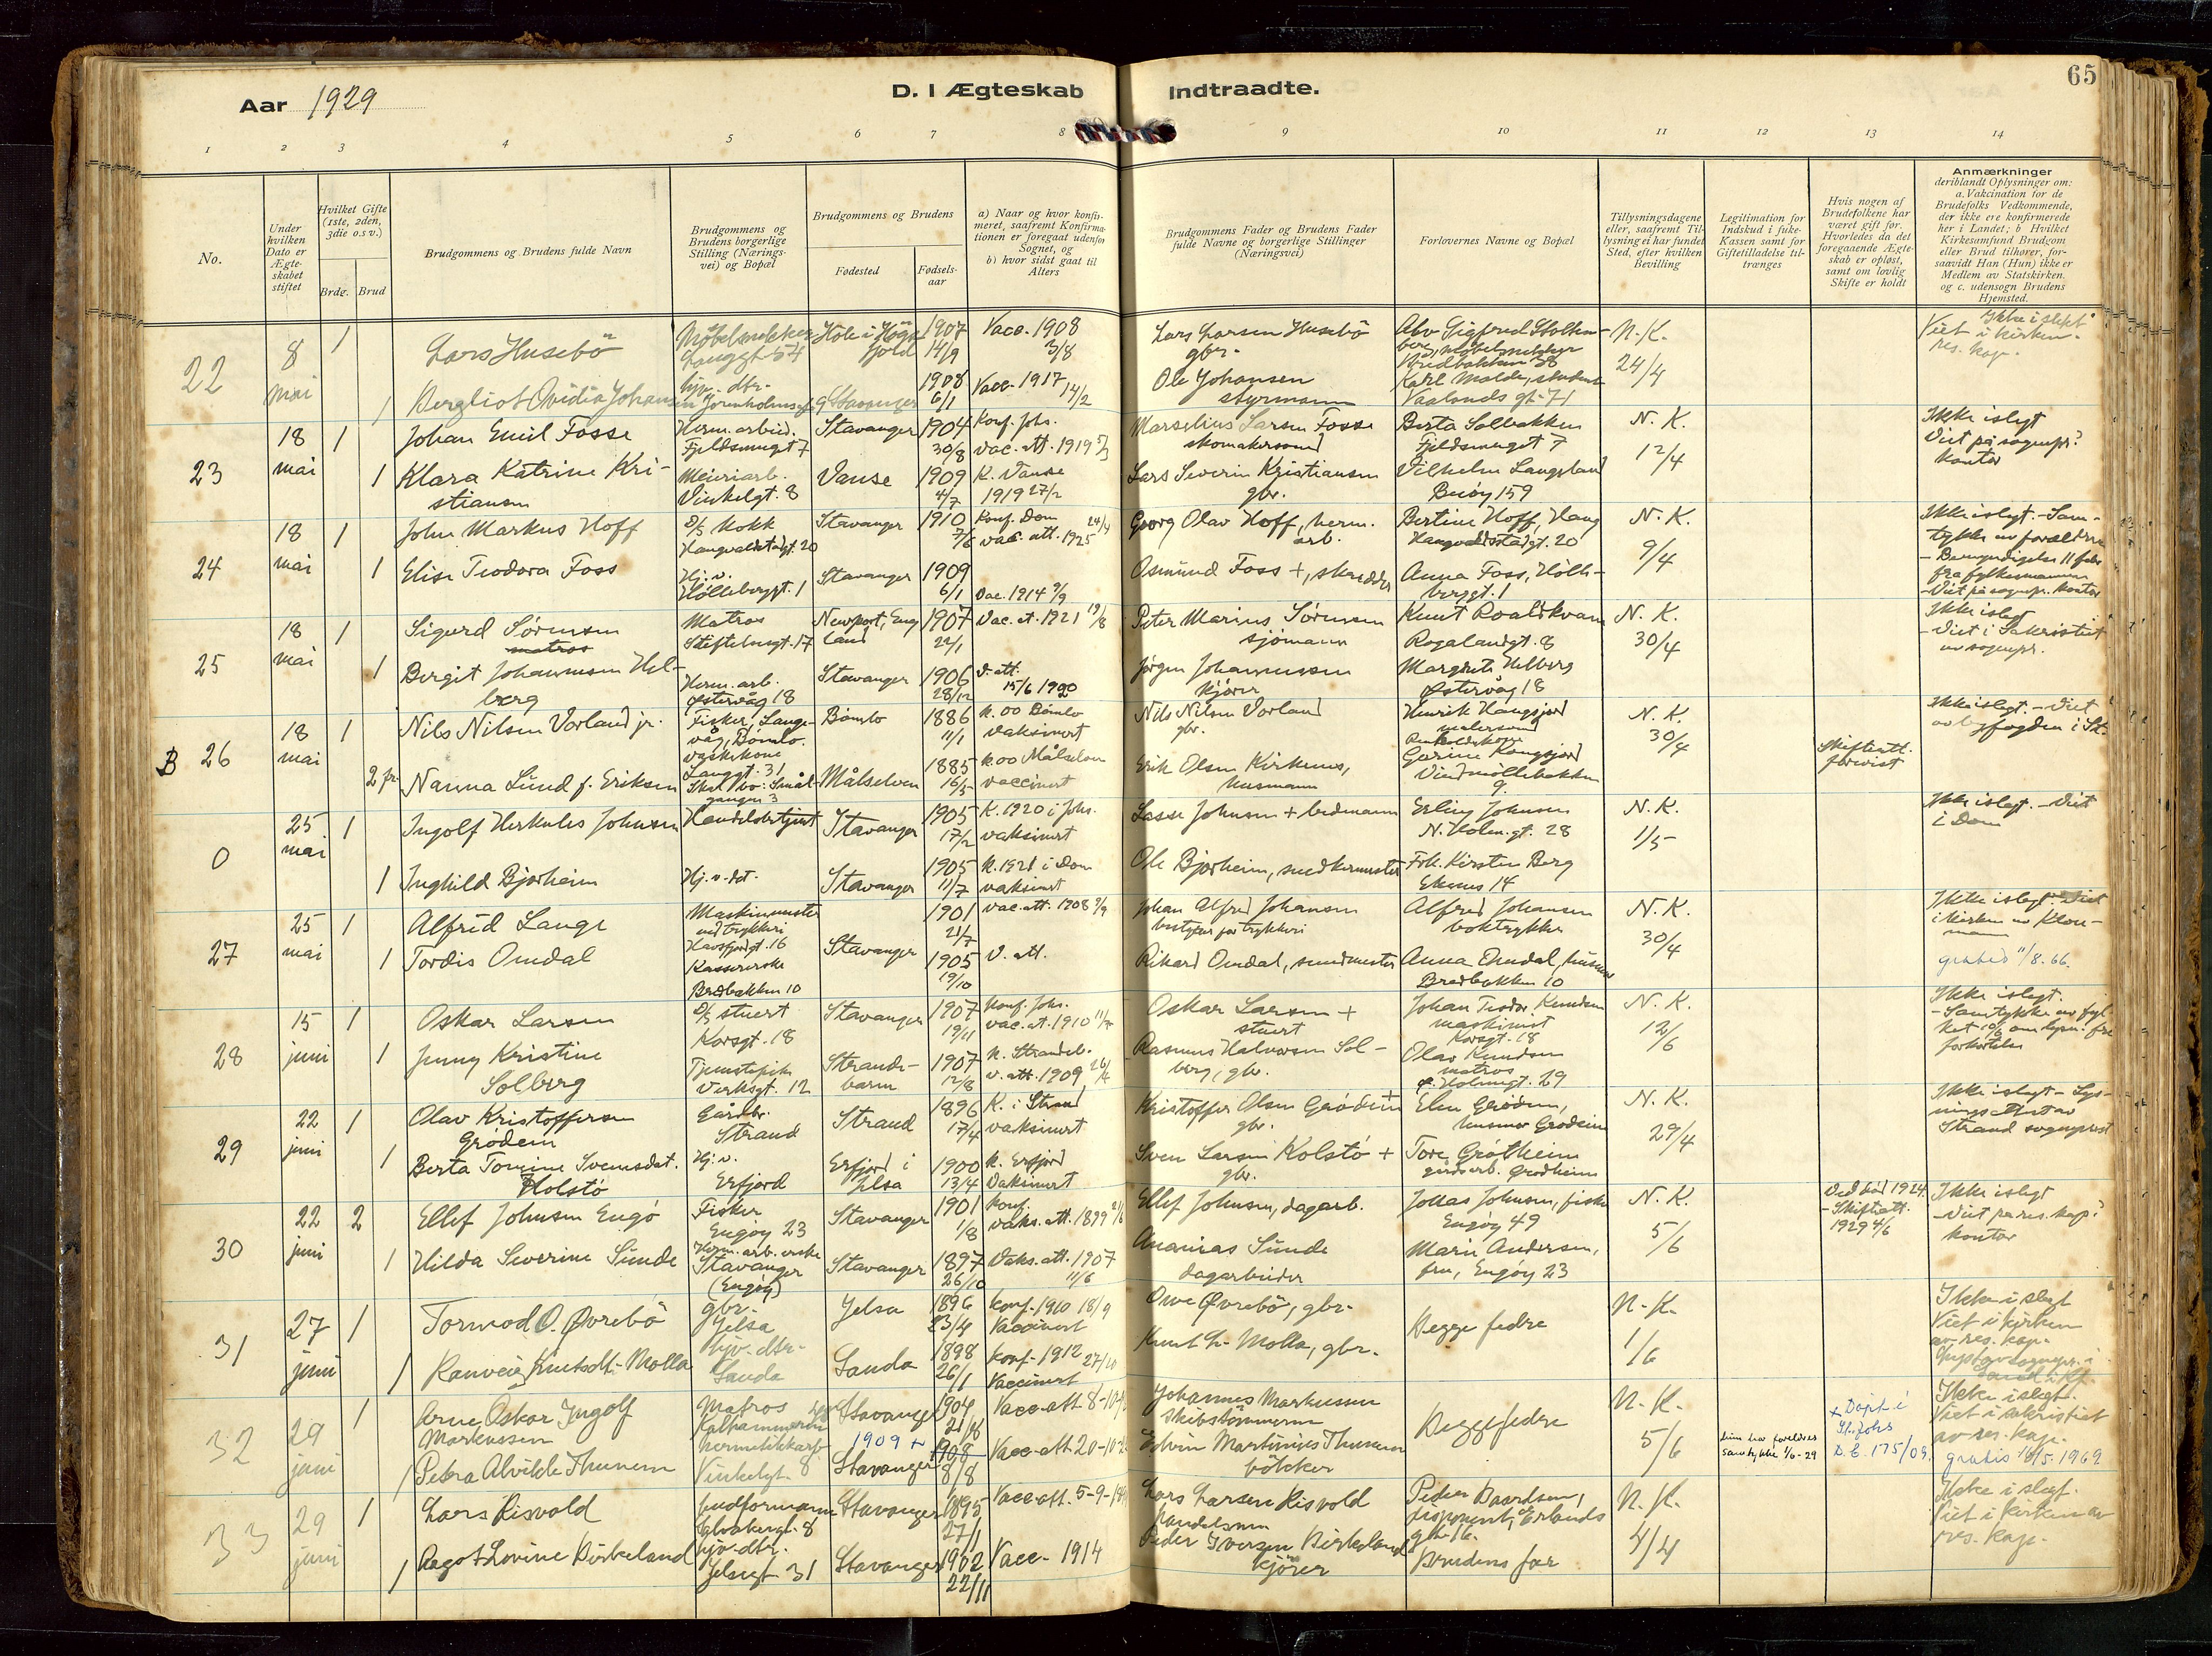 65
Aar 1929
D. I Ægteskab Indtraadte.
1 2 3 4 5 6 7 8 9 10 11 12 13 14
No.
Under hvilken Dato er Ægte- skabet stiftet
Hvilket Gifte (1ste, 2den, 3die o.s.v.)
Brdg. Brud
Brudgommens og Brudens fulde Navn
Brudgommens og Brudens borgerlige Stilling (Nærings- vei) og Bopæl
Brudgommens og Brudens
Fødested
Fødsels- aar
a) Naar og hvor konfir- meret, saafremt Konfirma- tionen er foregaat udenfor Sognet, og b) hvor sidst gaat til Alters
Brudgommens Fader og Brudens Fader fulde Navne og borgerlige Stillinger (Næringsvei)
Forlovernes Navne og Bopæl
Tillysningsdagene eller, saafremt Til- lysning ei har fundet Sted, efter hvilken Bevilling
Legitimation for Indskud i Enke- Kassen samt for Giftetilladelse til- trænges
Hvis nogen af Brudefolkene har været gift før. Hvorledes da det foregaaende Ægte- skab er opløst, samt om lovlig Skifte er holdt
Anmærkninger
deriblandt Oplysninger om: a. Vakcination for de Brudefolks Vedkommende, der ikke ere konfirmerede her i Landet; b Hvilket Kirkesamfund Brudgom eller Brud tilhører, for- saavidt Han (Hun) ikke er Medlem av Statskirken. og c. udensogn Brudens Hjemsted.
22 8 mai 1 Lars Husebö Möbelsnekker Langgt. 1907 14/9 Vacc. 1908 3/8 Lars Larsen Husebö gbr. N.K. 24/4 Ikke i slekt Viet i kirken. res. kap.
1 Bergliot Ovidia Johansen hjv. dtr. Stavanger 1908 6/1 Vacc. 1917 14/2 Ole Johansen styrmann Karl Molde, student Vaalands gt. 71
23 18 mai 1 Johan Emil Fosse Herm. arbeid. Fjeldsmuget 7 Stavanger 1904 30/8 Konf. Johs. vac. att. 1919 Marselius Larsen Fosse skomakersvend Berta Solbakken Fjeldsmuget 7 N. K. 12/4 Ikke i slegt Viet på sognepr. kontor
1 Klara Katrine Kri- stiansen Meieriarb. Vinkelgt. 8 Vanse 1909 4/7 K. Vanse 1919 27/2 Lars Severin Kristiansen gbr. Vilhelm Langeland Buøy 159
24 18 mai 1 John Markus Hoff D/S Kokk Haugvaldstadgt. 20 Stavanger 1910 7/6 Konf. Dom vac. att. 1925 24/4 Georg Olav Hoff, herm. arb. Bertine Hoff, Haugvaldstadgt. 20 N. K. 9/4 Ikke i slegt. - Sam- tykke av foreldre - fra fylkesmannen - Viet på sognepr. kontor
1 Elise Teodora Foss Hj. v. Hölleberggt. 1 Stavanger 1909 6/1 Vac. 1914 9/9 Osmund Foss +, skredder Anna Foss, Hölle- berggt. 1
25 18 mai 1 Sigurd Sörensen matros Matros Stiftelsesgt. 17 Newport, Eng land 1907 22/1 Vac. at. 1921 19/8 Peter Marius Sörensen sjömann Knut Roaldkvam Rogalandgt. 8 N. K. 30/4 Ikke i slegt - Viet i Sakristiet av sognepr.
1 Bergit Johannesen Hel- berg Herm. arb. Østervåg 18 Stavanger 1906 28/12 V. att. 15/6 1920 Jörgen Johannessen kjörer Margrete Helberg Østervåg 18
B 26 18 mai 1 Nils Nilsen Vorland jr. Fisker, Lange- våg, Bömlo. Bömlo 1886 11/1 k. 00 Bömlo vaksinert Nils Nilsen Vorland gbr. Henrik Haugsjord malersvend N. K. 30/4 Ikke i slegt. - Viet av byfogden i St.
2 fr. Nanna Lund f. Eriksen vaskekone Langgt. 31 Målselven 1885 16/5 k. 00 Målselven vaccinert Erik Olsen Kirknes, husmann Vindmöllebakken 9. Skifteatt. forevist
0 25 mai 1 Ingolf Herkules Johnsen Handelsbetjent Stavanger 1905 17/2 K. 1920 i Johs. vaksinert Lasse Johnsen + Erling Johnsen N. Holmgt. 28 N. K. 1/5 Ikke i slegt. - Viet i Dom
1 Inghild Bjorheim Hj. v. det. Stavanger 1905 11/7 k. 1921 i Dom vaksinert Ole Bjorheim, snedkermester Frk. Kirsten Berg Ekenes 14
27 25 mai 1 Alfred Lange Maskinmester ved trykkeri Havsfjordgt. 16 Stavanger 1901 21/7 vac. att. 1908 9/9 Johan Alfred Johansen bestyrer for trykkeri Alfred Johansen boktrykker N. K. 30/4 Ikke i slegt. Viet i kirken av Klou- mann gratis 11/8. 66.
1 Tordis Omdal Kassererske Bredbakken 10 1905 19/10 V. att. Rikard Omdal, smedmester Anna Omdal, husmor Bredbakken 10
28 15 juni 1 Oskar Larsen D/S stuert Korsgt. 18 Stavanger 1907 19/11 Konf. Johs. vac. at. 1910 Oskar Larsen + stuert Johan Teodor Knudsen maskinist Korsgt. 18 N. K. 12/6 Ikke i slegt. - Samtykke av fyl- ket 10/6 om lysn. fra forkortelse
1 Jenny Kristine Solberg Tjenestepike Verksgt. 12 Strande- barm 1907 12/8 k. Strandeb. v. att. 1909 26/4 Rasmus Halvorsen Sol- berg, gbr. Olav Knudsen matros Ø. Holmegt. 29
29 22 juni 1 Olav Kristoffersen Grödem Gårdbr. Strand Strand 1896 17/4 K. i Strand vaksinert Kristoffer Olsen Grödem + gbr. Elen Grödem, husmor Grödeim N. K. 29/4 Ikke i slegt - Lys- nings Attest av Strand sogneprest
1 Berta Tomine Svensdat. Kolstö Hj. v. Erfjord Erfjord i Jelsa 1900 13/4 k. Erfjord Vaksinert Sven Larsen Kolstö + gbr. Tore Grötheim gårdsarb. Grödheim
30 22 juni 2 Ellef Johnsen Engö Fisker Engöy 23 Stavanger 1901 1/8 Konf. vaks. att. 1899 Ellef Johnsen, dagarb. Jonas Johnsen, fisker Engöy 49 N. K. 5/6 Ved död 1924. - Skifteatt. 1929 4/6 Ikke i slegt - Viet på res. kap. kontor
1 Hilda Severine Sunde Herm. arb. erske Stavanger (Engöy) Stavanger 1897 26/10 Vaks. att. 1907 11/6 Ananias Sunde dagarbeider Marie Andersen, fru, Engöy 23
31 27 juni 1 Tormod O. Øvrebö gbr. Jelsa Jelsa 1896 23/4 Konf. 1910 18/9 Vaccinert Ove Øvrebö, gbr. Begge fedre N. K. 1/6 Ikke i slegt Viet i kirken av res. kap.
1 Ranveig Knutsdt. Molla hjv. dtr. Sauda Sauda 1898 26/1 Konf. 1912 27/10 Vaccinert Knut L. Molla, gbr.
32 29 juni 1 Arne Oskar Ingolf Markussen Matros Stavanger 1904 21/8 Vacc. att 8-10 Johannes Markussen Skibstömmerm Begge fedre N. K. 5/6 hun har foreldres samtykke 1/6-29 + Döpt i St. Johs D. E. 175/09. Ikke i slegt. Viet i sakristiet av res. kap. gratis 16/5. 1969
1 Petra Alvilde Thunem hermetikkarb Vinkelgt. 8 1909 + Stavanger 1908 8/8 Vacc. att 20-10 Edvin Martinius Thunem bökker
33 29 juni 1 Lars Risvold Budformann 8 Stavanger 1895 27/1 Vacc. att. 5-9- Lars Larsen Risvold handelsmn Peder Baardsen, disponent, Erlands gt. 16. N. K. 4/4 Ikke i slegt. Viet i kirken av res. kap.
1 Aagot Lovine Birkeland hjv. dtr. Jelsagt. 31 Stavanger 1902 22/11 Vacc. 1914 Peder Iversen Birkeland kjörer Brudens far